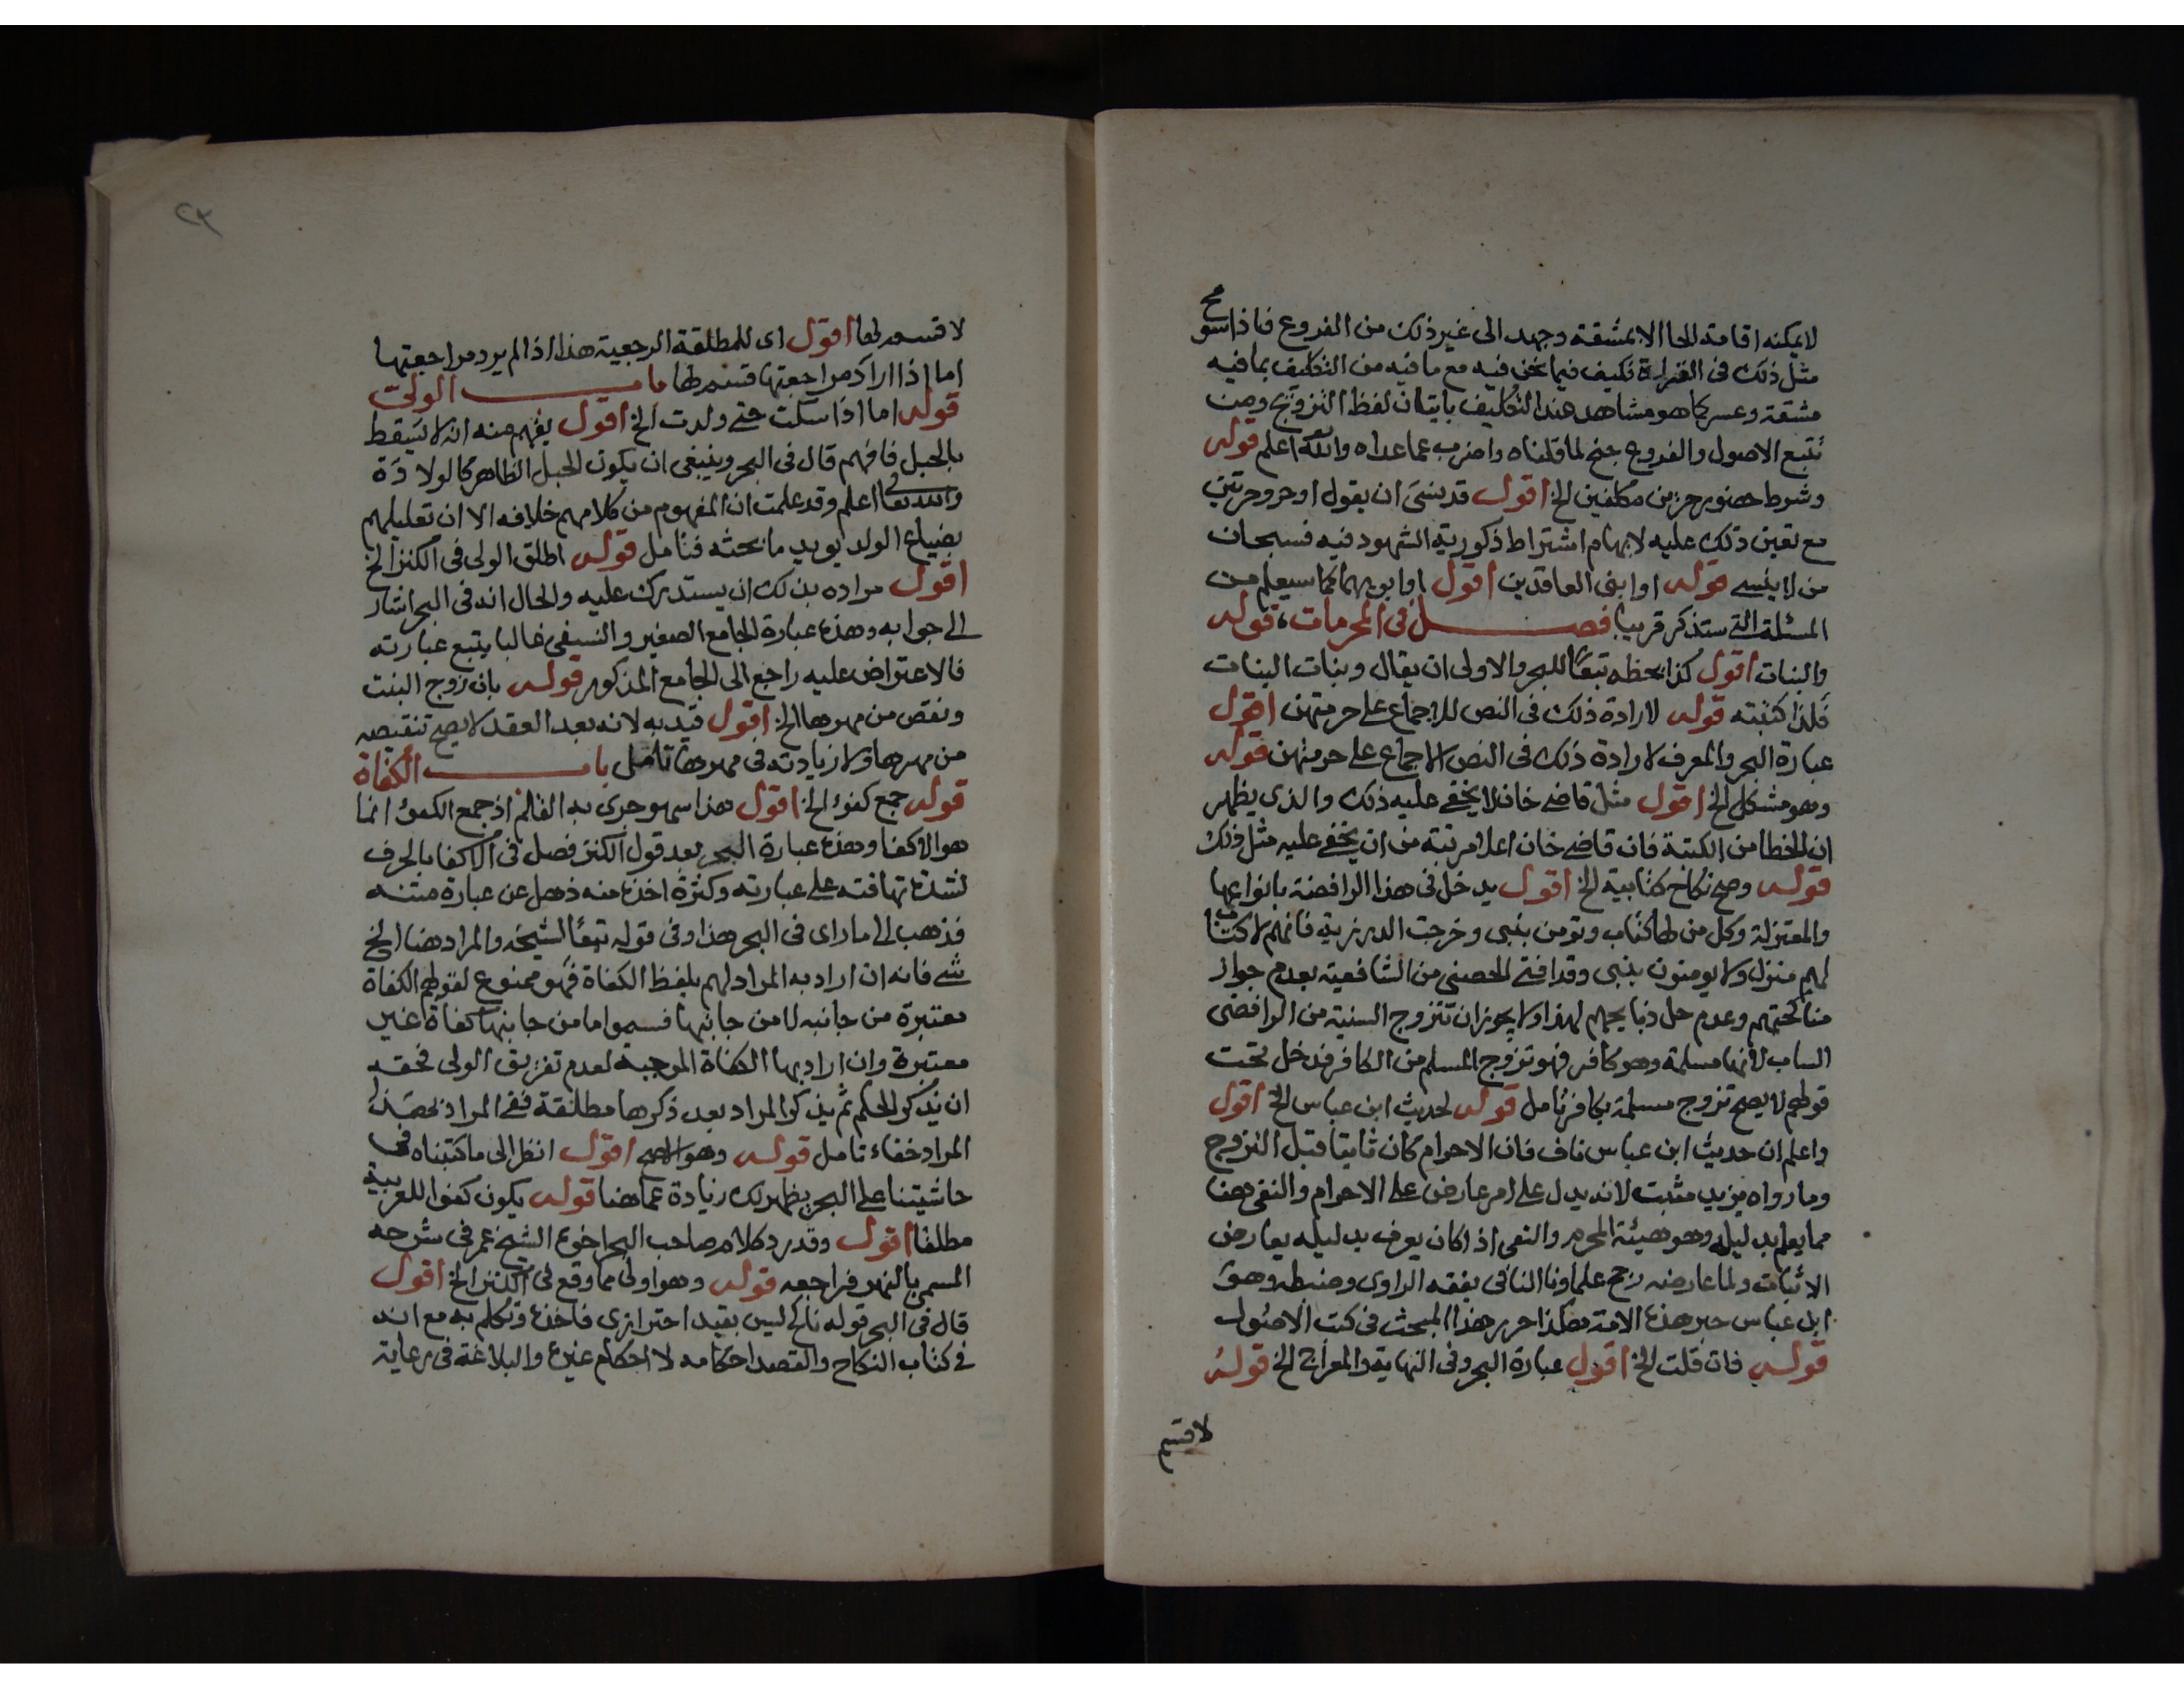 لا يمكنه اقامة الحا الا بمشقة وجهد الى غير ذلك من الفروع فاذا سومح
مثل ذلك فى القراءة فكيف فيما نحن فيه مع ما فيه من التكليف بما فيه
مشقة وعسر كما هو مشاهد عند التكليف باتيان لفظ التزويج ومن
تتبع الاصول والفروع جنح لما قلناه واضرب عما عداه والله اعلم قوله
وشرط حضور حرين مكلفين الخ اقول قد ينسى ان يقول او حر وحرتين
مع تعين ذلك عليه لايهام اشتراط ذكورية الشهود فيه فسبحان
من لا ينسى قوله او ابنى العاقدين اقول او ابويهما كما سيعلم من
المسئلة التى ستذكر قريبا فصل فى المحرمات قوله
والبنات اقول كذا بخطه تبعا للبحر والاولى ان يقال وبنات البنات
فلذا كتبته قوله لارادة ذلك فى النص للاجماع على حرمتهن اقول
عبارة البحر والمعرف لارادة ذلك فى النص الاجماع على حرمتهن قوله
وهو مشكل الخ اقول مثل قاضى خان لا يخفى عليه ذلك والذى يظهر
ان الخطا من الكتبة فان قاضى خان اعلا مرتبة من ان يخفى عليه مثل ذلك
قوله وصح نكاح كتابية الخ اقول يدخل فى هذا الرافضة بانواعها
والمعتزلة وكل من لها كتاب وتومن بنبى وخرجت الدرزية فانهم لا كتاب
لهم منزل ولا يومنون بنبى وقد افتى الحصنى من الشافعية بعدم جواز
مناكحتهم وعدم حل ذبايحهم لهذا ولا يجوز ان تتزوج السنية من الرافضى
الساب لانها مسلمة وهو كافر فهو تزوج المسلم من الكافر فدخل تحت
قولهم لا يصح تزوج مسلمة بكافر تامل قوله لحديث ابن عباس الخ اقول
واعلم ان حديث ابن عباس ناف فان الاحرام كان ثابتا قبل التزوج
وما رواه يزيد مثبت لانه يدل على امر عارض على الاحرام والنفى هنا
مما يعلم بدليله وهو هيئة المحرم والنفى اذا كان يعرف بدليله يعارض
الاثبات ولما عارضه رجح علماونا النافى بفقه الراوى وضبطه وهو
ابن عباس حبر هذه الامة هكذا حرر هذا المبحث فى كتب الاصول
قوله فان قلت الخ اقول عبارة البحر وفى النهاية والمعراج الخ قوله
لا قسم
٢٣
لا قسم لها اقول اى للمطلقة الرجعية هذا اذا لم يرد مراجعتها
اما اذا اراد مراجعتها قسم لها باب الولى
قوله اما اذا سكت حتى ولدت الخ اقول يفهم منه انه لا يسقط
بالحبل فافهم قال فى البحر وينبغى ان يكون الحبل الظاهر كالولادة
والله تعالى اعلم وقد علمت ان المفهوم من كلامهم خلافه الا ان تعليلهم
بضياع الولد يويد ما بحثه فتامل قوله اطلق الولى فى الكنز الخ
اقول مراده بذلك ان يستدرك عليه والحال انه فى البحر اشار
الى جوابه وهذه عبارة الجامع الصغير والنسفى غالبا يتبع عبارته
فالاعتراض عليه راجع الى الجامع المذكور قوله بان زوج البنت
ونقص من مهرها الخ اقول قيد به لانه بعد العقد لا يصح تنقيصه
من مهرها ولا زيادته فى مهرها تامل باب الكفاة
قوله جمع كفؤ الخ اقول هذا سهو جرى به القلم اذ جمع الكفؤ انما
هو الاكفا وهذه عبارة البحر بعد قول الكنز فصل فى الاكفا بالحرف
لشدة تهافته على عبارته وكثرة اخذه منه ذهل عن عبارة متنه
فذهب الى ما راى فى البحر هذا وفى قوله تبعا لشيخه والمراد هنا الخ
شى فانه ان اراد به المراد لهم بلفظ الكفاة فهو ممنوع لقولهم الكفاة
معتبرة من جانبه لا من جانبها فسموا ما من جانبها كفاة غير
معتبرة وان اراد بها الكفاة الموجبة لعدم تفريق الولى فحقه
ان يذكر الحكم ثم يذكر المراد بعد ذكرها مطلقة ففى المراد
المراد خفاء تامل قوله وهو الاصح اقول انظر الى ما كتبناه فى
حاشيتنا على البحر يظهر لك زيادة عما هنا قوله يكون كفوا للعربية
مطلقا اقول وقد رد كلام صاحب البحر اخوه الشيخ عمر فى شرحه
المسمى بالنهر فراجعه قوله وهو اولى مما وقع فى الكنز الخ اقول
قال فى البحر قوله ناكح ليس بقيد احترازى فاخذه وتكلم به مع انه
فى كتاب النكاح والقصد احكامه لا احكام غيره والبلاغة فى رعاية